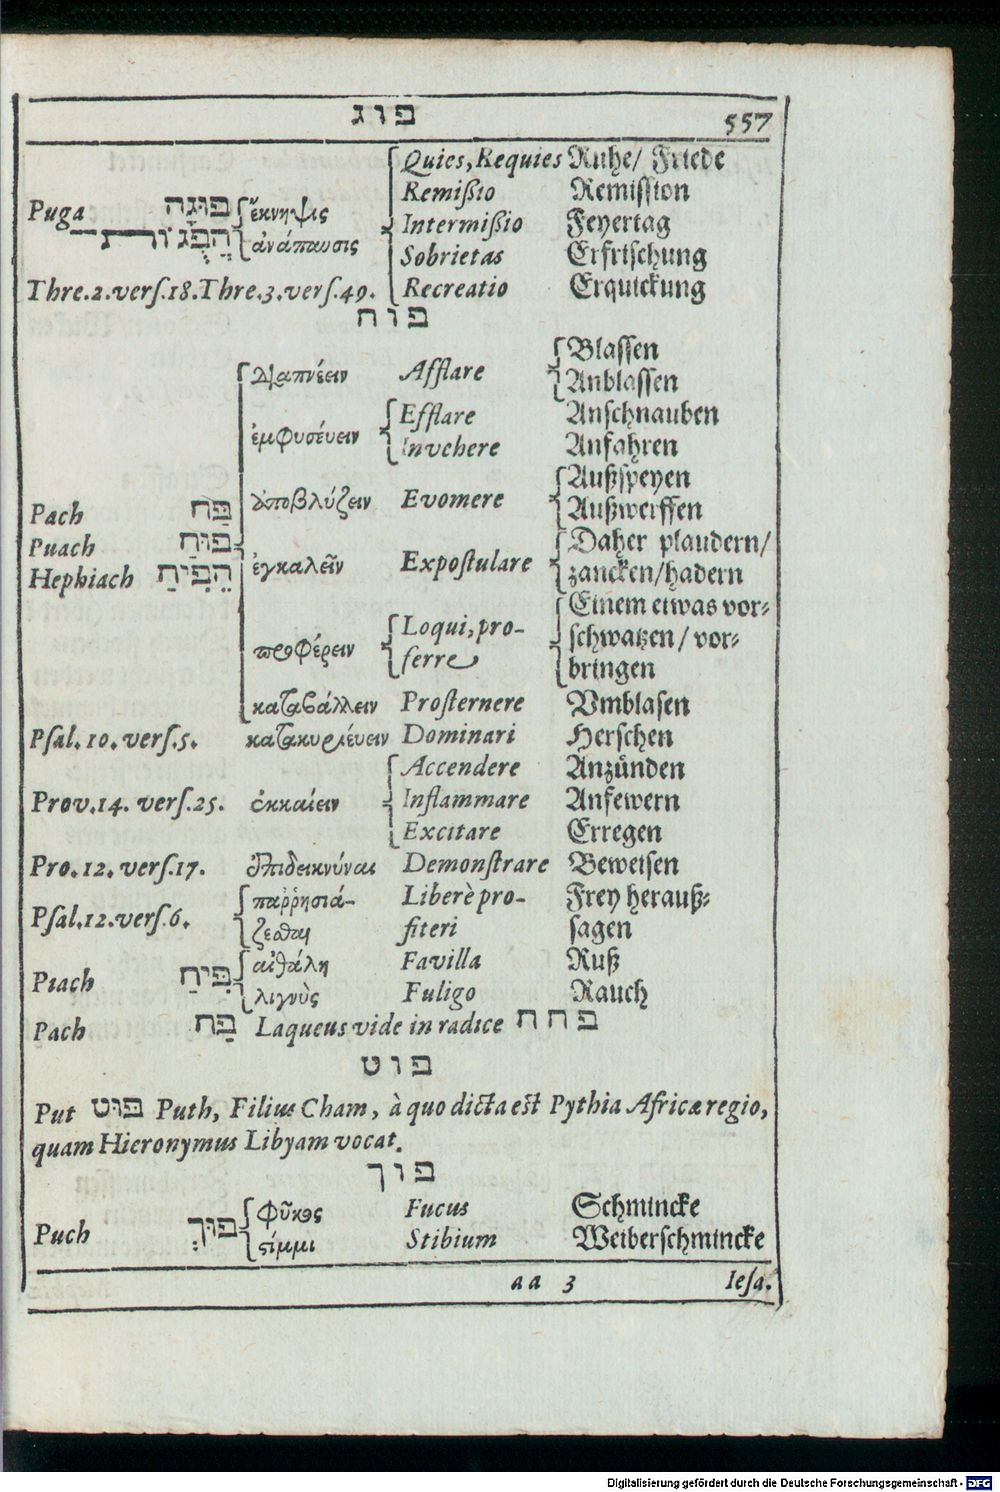 פוג 557
Quies, Requies Ruhe/ Friede
Remißio Remission
Puga פוּגָה ἔκνηψις Intermißio Feyertag
ἀνάπαυσις Sobrietas Erfrischung
Thre.2.vers.18.Thre.3.vers.49. Recreatio Erquickung
פוח
Blassen
διαπνέειν Afflare Anblassen
Efflare Anschnauben
ἐμφυσέυειν Invehere Anfahren
Außspeyen
Pach פַּח ἀποβλύζειν Evomere Außwerffen
Puach פּוּחַ Daher plaudern/
Hephiach הֵפִיחַ ἐγκαλεῖν Expostulare zancken/hadern
Einem etwas vor-
Loqui, pro- schwatzen/ vor-
προφέρειν ferre bringen
καταβάλλειν Prosternere Vmblasen
Psal. 10. vers.5. κατακυριέυειν Dominari Herschen
Accendere Anzünden
Prov.14. vers.25. ἐκκαίειν Inflammare Anfewern
Excitare Erregen
Pro. 12. vers.17. ἐπιδεικνύναι Demonstrare Beweisen
παῤῥησιά- Liberè pro- Frey herauß-
Psal.12.vers.6. ζεσθαι fiteri sagen
αἰθάλη Favilla Ruß
Piach פִּיחַ λιγνὺς Fuligo Rauch
Pach פַּח Laqueus vide in radice פחח
פוט
Put פּוּט Puth, Filius Cham, à quo dicta est Pythia Africæ regio,
quam Hieronymus Libyam vocat.
פוך
φῦκος Fucus Schmincke
Puch פּוּךְ ςίμμι Stibium Weiberschmincke
aa 3 Iesa.
Digitalisierung gefördert durch die Deutsche Forschungsgemeinschaft - DFG